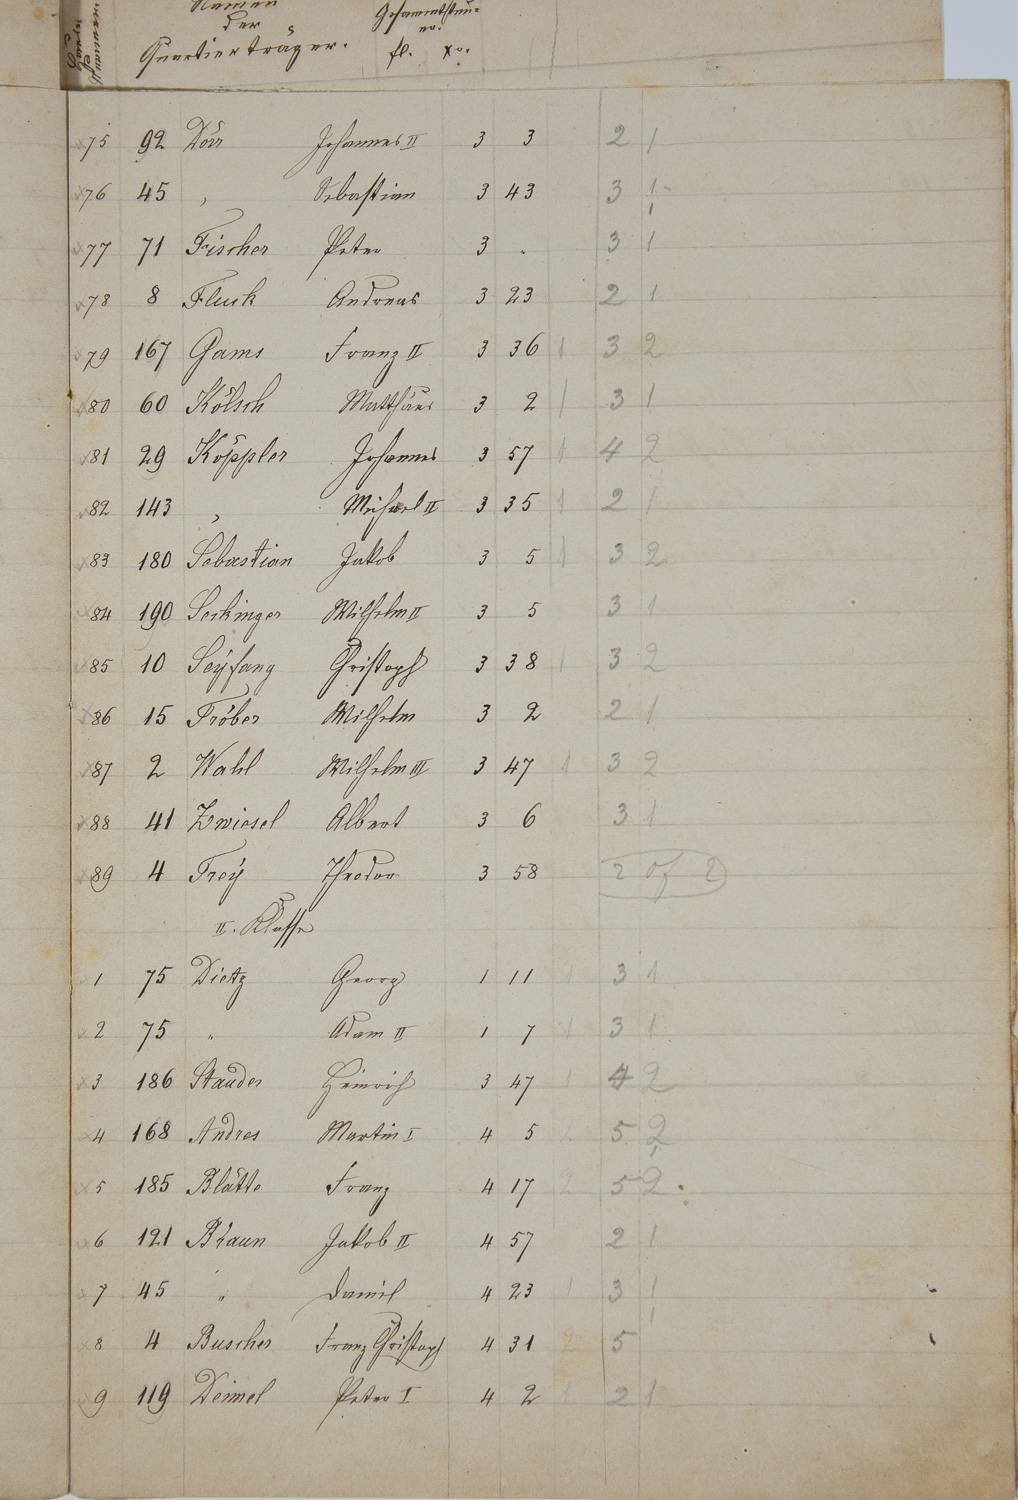 Namen Gesammtsteu-
der er.
Quartierträger. fl. xr.
75 92 Dörr Johannes II 3 3 2 1
76 45 " Sebastian 3 43 3 1
77 71 Fischer Peter 3 . 3 1
78 8 Fluck Andreas 3 23 2 1
79 167 Gams Franz II 3 36 1 3 2
80 60 Kölsch Matthäus 3 2 1 3 1
81 29 Köppler Johannes 3 57 1 4 2
82 143 " Michael II 3 35 1 2 1
83 180 Sebastian Jakob 3 5 1 3 2
84 190 Seckinger Wilhelm II 3 5 3 1
85 10 Seÿfang Christoph 3 38 1 3 2
86 15 Tröber Wilhelm 3 2 2 1
87 2 Wahl Wilhelm III 3 47 1 3 2
88 41 Zwiesel Albert 3 6 3 1
89 4 Freÿ Theodor 3 58 2 of 2
II. Klasse
1 75 Dietz Georg 1 11 1 3 1
2 75 " Adam II 1 7 1 3 1
3 186 Stauder Heinrich 3 47 1 4 2
4 168 Andres Martin I 4 5 2 5 2
5 185 Blätte Franz 4 17 2 5 2
6 121 Braun Jakob II 4 57 2 1
7 45 " Daniel 4 23 1 3 1
8 4 Buscher Franz Christoph 4 31 2 5
9 119 Deimel Peter I 4 2 1 2 1